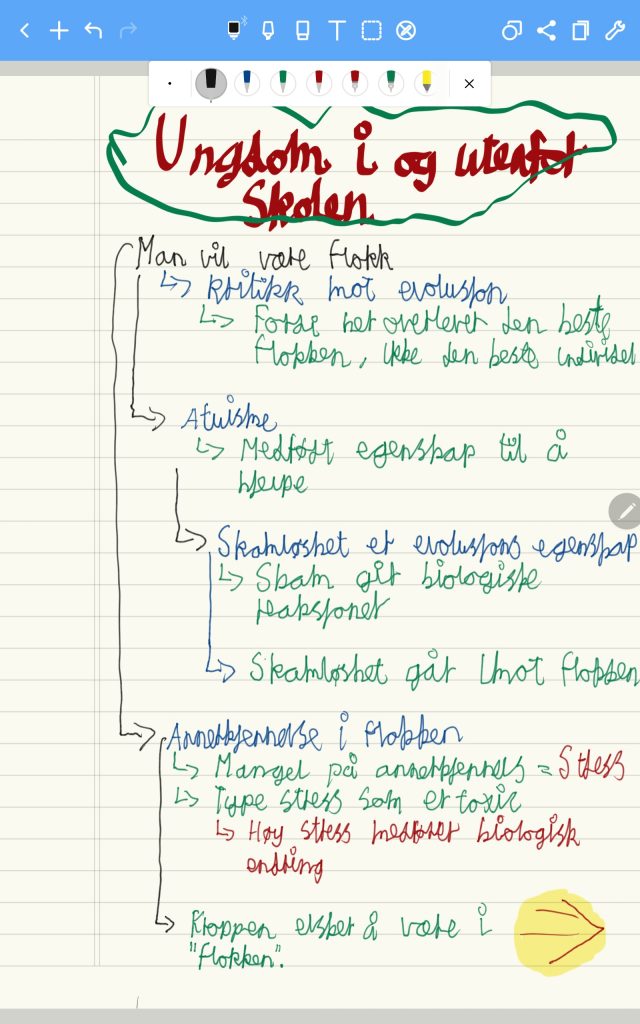 Ungdom i og utenfor
Skolen
Man vil være flokk
Kritikk mot evolusjon
flokken, ikke den beste individet
Medfødt egenskap til å
hjelpe
Skamløshet er evolusjons egenskap
Skam går biologiske
reaksjoner
Skamløshet går imot flokken
Annerkjennelse i flokken
Mangel på annerkjennels = Stress
Type stress som er toxic
Høy stress medfører biologisk
endring
Kroppen elsker å være i
"flokken".